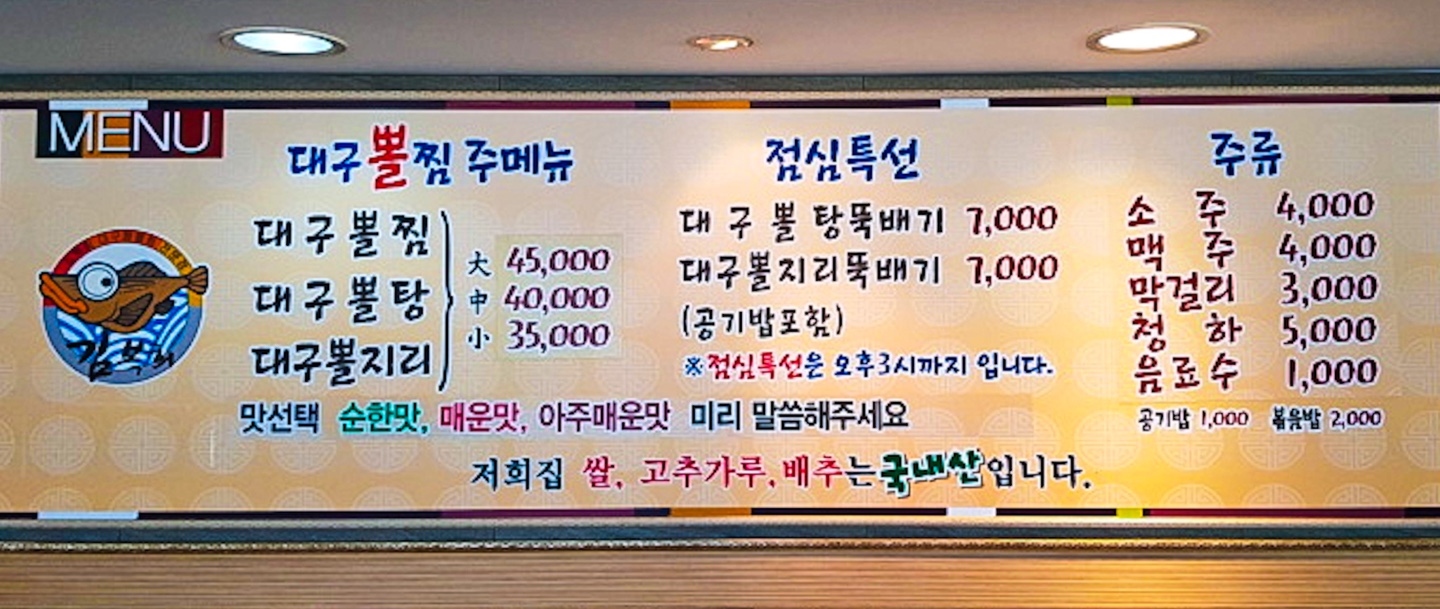 MENU
대구뽈찜 주메뉴
대구뽈찜
대구뽈탕
대구뽈지리
大 45,000
中 40,000
小 35,000
점심특선
대구뽈탕뚝배기 7,000
대구뽈지리뚝배기 7,000
(공기밥포함)
※점심특선은 오후3시까지 입니다.
주류
소주 4,000
맥주 4,000
막걸리 3,000
청하 5,000
음료수 1,000
공기밥 1,000 볶음밥 2,000
맛선택 순한맛, 매운맛, 아주매운맛 미리 말씀해주세요
저희집 쌀, 고추가루, 배추는 국내산입니다.